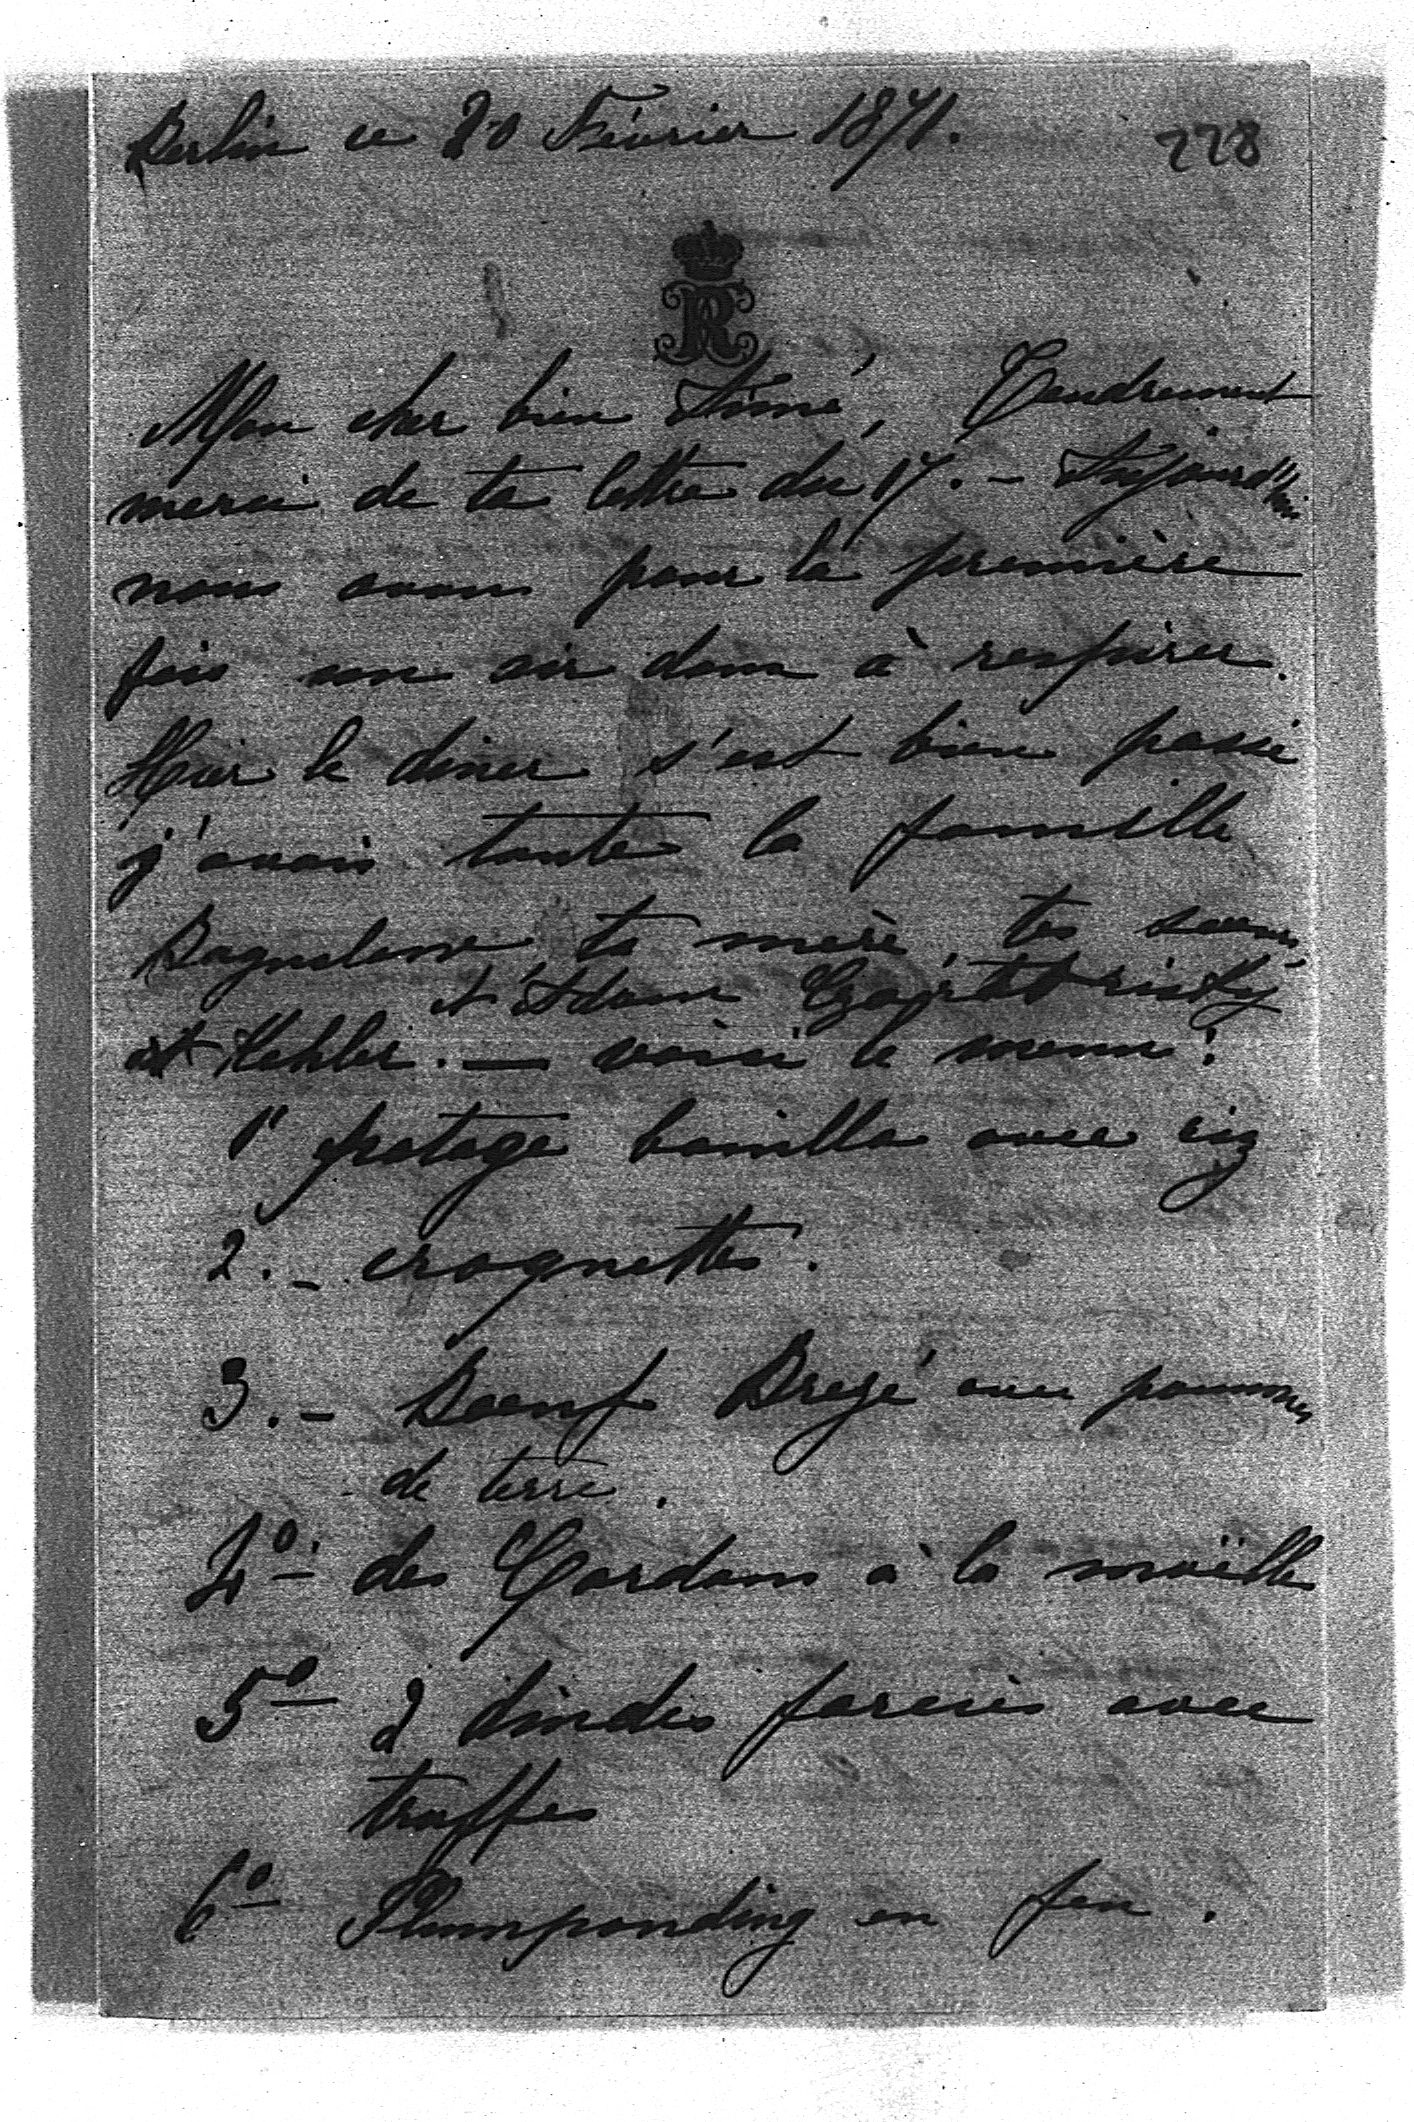 Berlin ce 20 Février 1871.
228
R
Mon cher bien Aimé, Tendrement
merci de ta lettre du 17. – Aujourd'hui
nous avons pour la première
fois un air doux à respirer.
Hier le diner s'est bien passé
j'avais toute la famille
ta mère, tes soeurs,
et Adam Czartoriski
et Kehler. — voici le menu:
1° potage bouillon avec riz
2. – croquettes.
3. – Boeuf avec pommes
de terre.
4° – des Cardons à la moëlle
5° – 2 dindes farcies avec
truffes
6° – Plumpouding en feu.